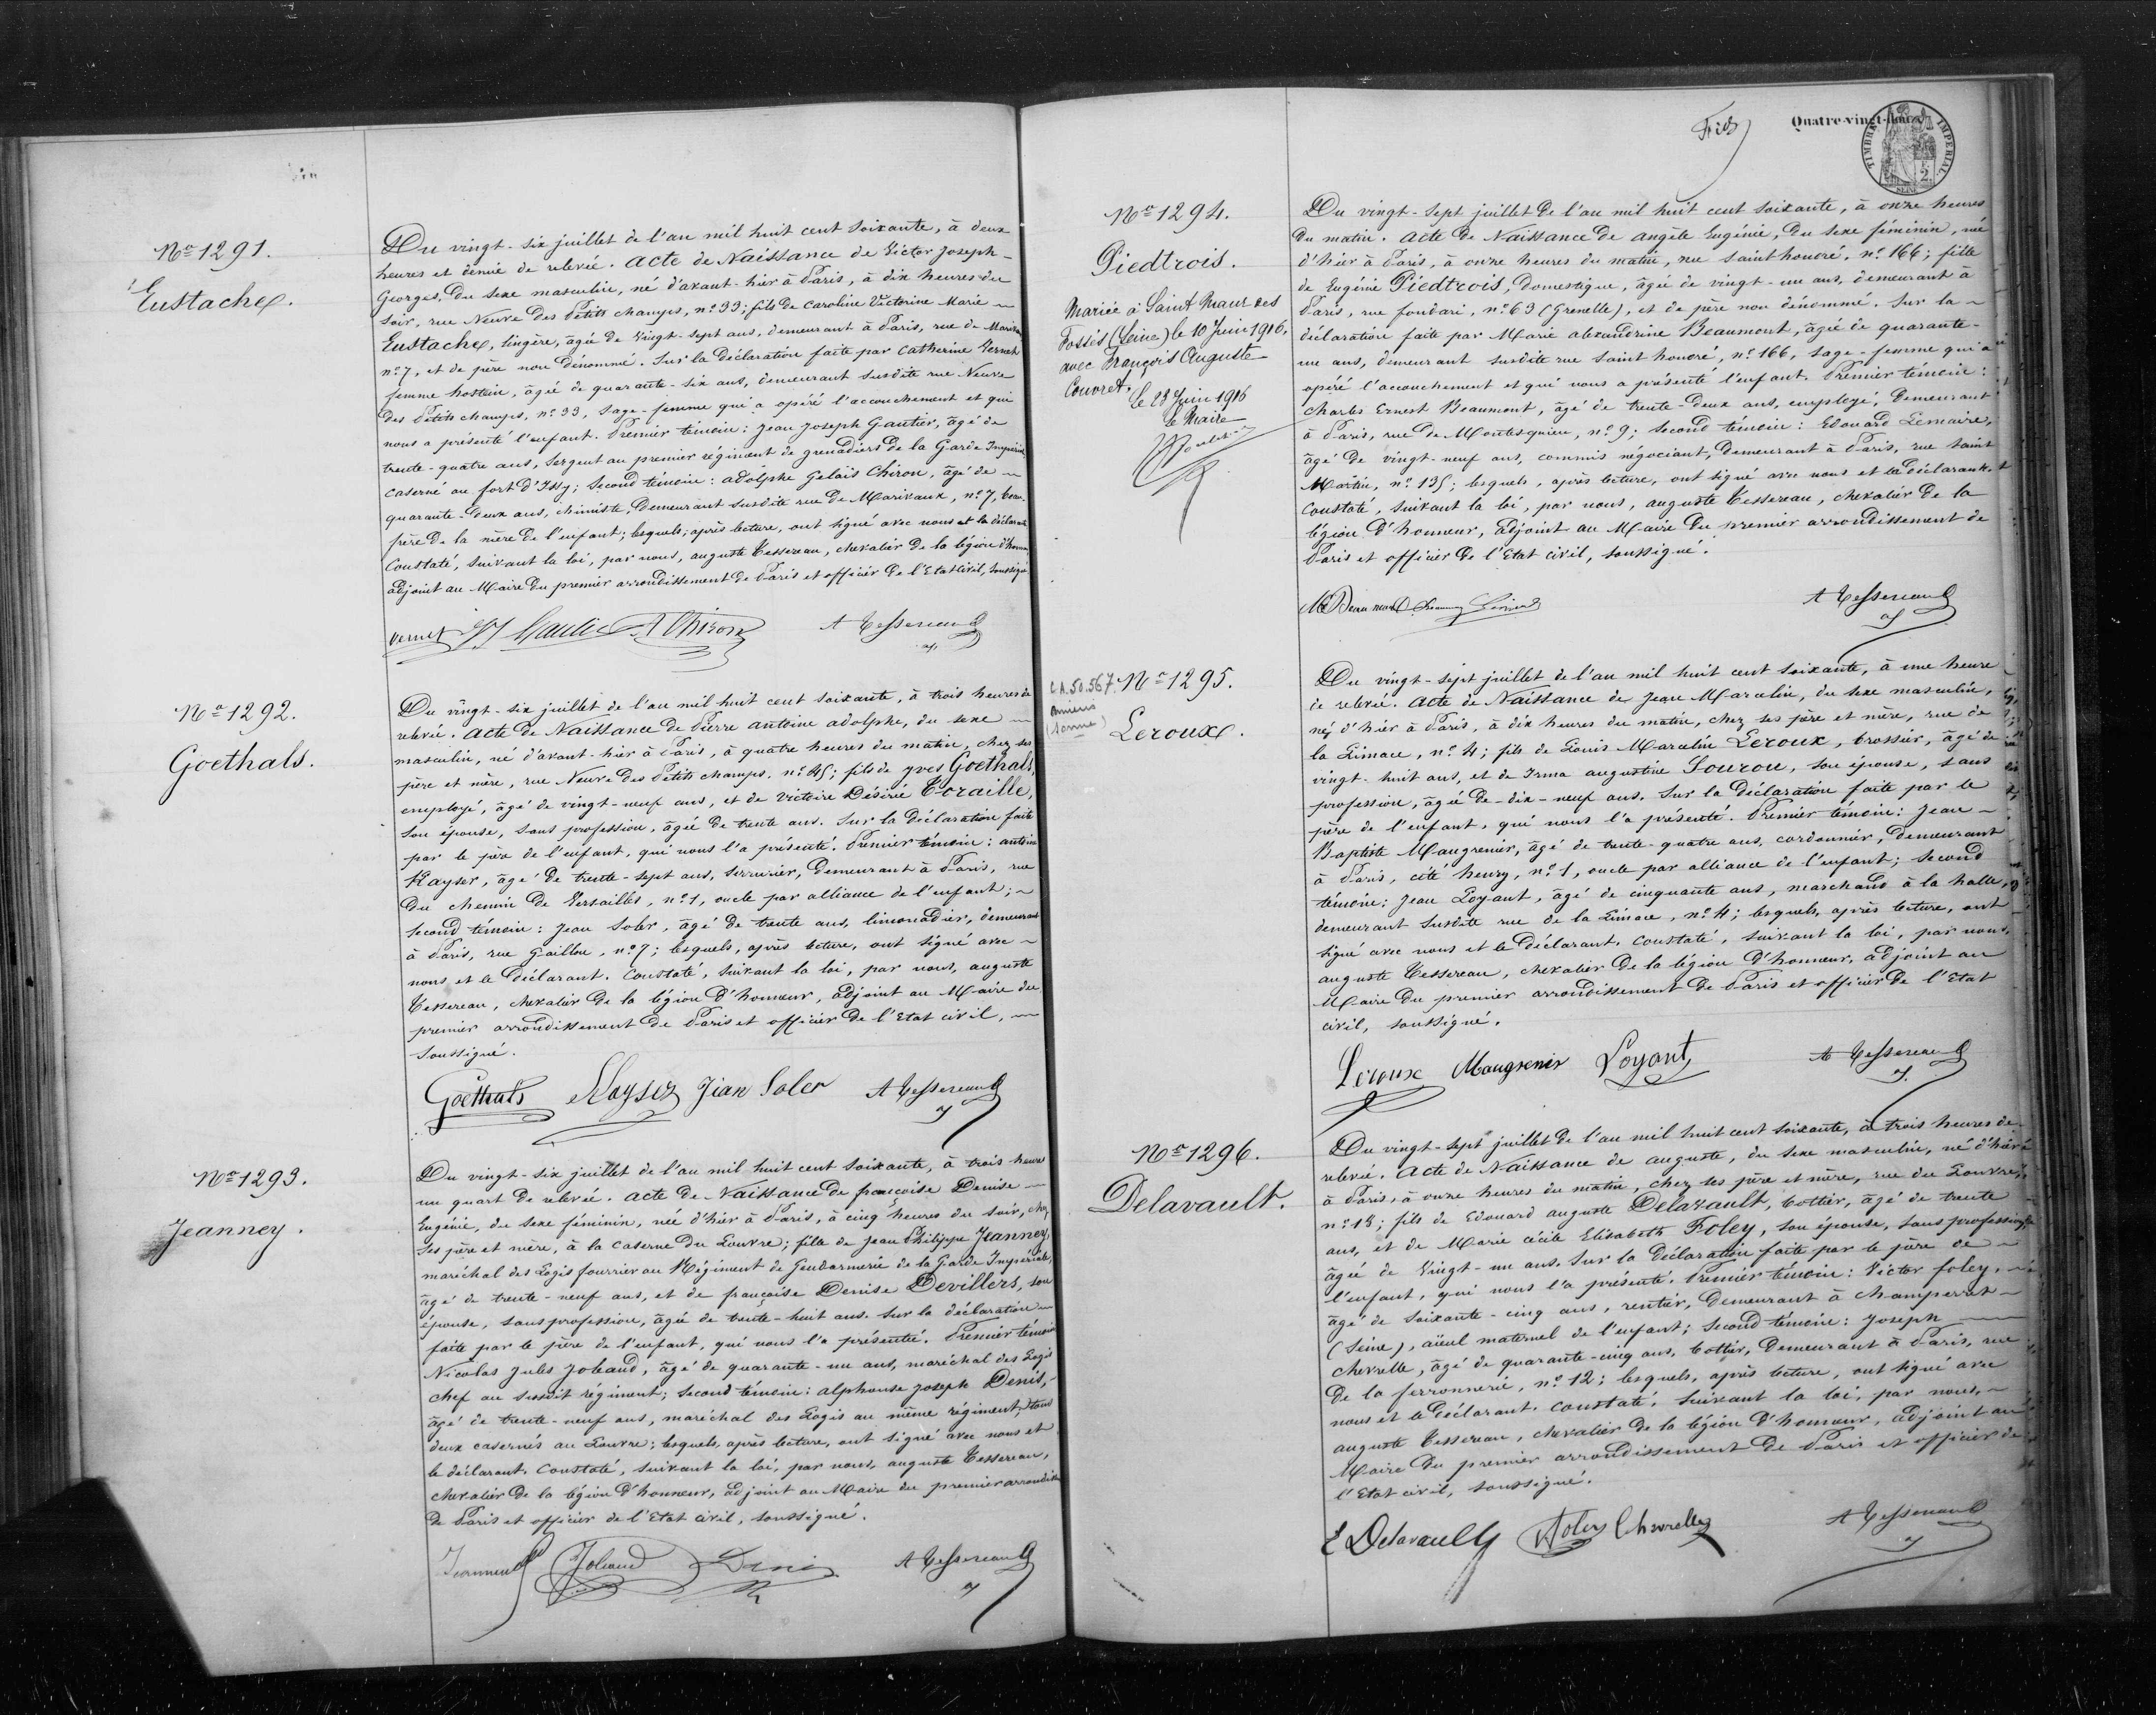 No 1291.
Eustache.
Du vingt-six juillet de l'an mil huit cent soixante, à deux
heures et demie de relevée. Acte de Naissance de Victor Joseph
Georges, du sexe masculin, né d'avant-hier à Paris, à dix heures du
soir, rue Neuve des Petits champs, no 33; fils de Caroline Victorine Marie
Eustache, lingère, âgée de vingt-sept ans, demeurant à Paris, rue de Marivaux
no 7, et de père non dénommé. Sur la déclaration faite par Catherine Vernet
femme hostein, âgée de quarante-six ans, demeurant susdite rue Neuve
des Petits champs, no 33, sage-femme qui a opéré l'accouchement et qui
nous a présenté l'enfant. Premier témoin: Jean Joseph Gautier, âgé de
trente-quatre ans, sergent au premier régiment de grenadiers de la Garde Impériale,
caserné au fort d'Issy; second témoin: adolphe Gelais Chiron, âgé de
quarante-deux ans, chimiste, demeurant susdite rue de Marivaux, no 7, beau-
père de la mère de l'enfant; lesquels, après lecture, ont signé avec nous et la déclarante
Constaté, suivant la loi, par nous, auguste Tessereau, chevalier de la légion d'honneur,
adjoint au Maire du premier arrondissement de Paris et officier de l'Etat civil, soussigné
Vernet JJ Gautier A Chiron A Tessereau
No 1292.
Goethals.
Du vingt-six juillet de l'an mil huit cent soixante, à trois heures de
relevée. Acte de Naissance de Pierre antoine adolphe, du sexe
masculin, né d'avant-hier à Paris, à quatre heures du matin, chez ses
père et mère, rue Neuve des Petits champs, no 45; fils de yves Goethals,
employé, âgé de vingt-neuf ans, et de Victoire Désirée Coraille,
son épouse, sans profession, âgée de trente ans. Sur la déclaration faite
par le père de l'enfant, qui nous l'a présenté. Premier témoin: antoine
Kayser, âgé de trente-sept ans, serrurier, demeurant à Paris, rue
du chemin de Versailles, no 1, oncle par alliance de l'enfant;
second témoin: Jean Soler, âgé de trente ans, limonadier, demeurant
à Paris, rue Gaillon, no 7; lesquels, après lecture, ont signé avec
nous et le déclarant. Constaté, suivant la loi, par nous, auguste
Tessereau, chevalier de la légion d'honneur, adjoint au Maire du
premier arrondissement de Paris et officier de l'Etat civil,
soussigné.
Goethals Kayser Jean Soler A Tessereau
No 1293.
Jeanney.
Du vingt-six juillet de l'an mil huit cent soixante, à trois heures
un quart de relevée. Acte de Naissance de françoise Denise
Eugénie, du sexe féminin, née d'hier à Paris, à cinq heures du soir, chez
ses père et mère, à la caserne du Louvre; fille de Jean Philippe Jeanney,
maréchal des Logis fourrier au Régiment de Gendarmerie de la Garde Impériale,
âgé de trente-neuf ans, et de françoise Denise Devillers, son
épouse, sans profession, âgée de trente-huit ans. Sur la déclaration
faite par le père de l'enfant, qui nous l'a présenté. Premier témoin
Nicolas Jules Joleaud, âgé de quarante-un ans, maréchal des Logis
chef au susdit régiment; second témoin: alphonse Joseph Denis,
âgé de trente-neuf ans, maréchal des Logis au même régiment, tous
deux casernés au Louvre; lesquels, après lecture, ont signé avec nous et
le déclarant. Constaté, suivant la loi, par nous, auguste Tessereau,
chevalier de la légion d'honneur, adjoint au Maire du premier arrondissemt
de Paris et officier de l'Etat civil, soussigné.
Jeanney Joleaud Denis A Tessereau
Quatre-vingt-douze
TIMBRE IMPERIAL
SEINE
2
No 1294.
Piedtrois.
Mariée à Saint Maur des
Fossés (Seine) le 10 Juin 1916,
avec François Auguste
Couvret.
le 23 Juin 1916
le Maire
Du vingt-sept juillet de l'an mil huit cent soixante, à onze heures
du matin. Acte de Naissance de angèle Eugénie, du sexe féminin, née
d'hier à Paris, à onze heures du matin, rue Saint honoré, no 166; fille
de Eugénie Piedtrois, domestique, âgée de vingt-un ans, demeurant à
Paris, rue fondari, no 63 (Grenelle), et de père non dénommé. Sur la
déclaration faite par Marie alexandrine Beaumont, âgée de quarante-
un ans, demeurant susdite rue Saint honoré, no 166, sage-femme qui a
opéré l'accouchement et qui nous a présenté l'enfant. Premier témoin:
Charles Ernest Beaumont, âgé de trente-deux ans, employé, demeurant
à Paris, rue de Montesquieu, no 9; second témoin: Edouard Lemaire,
âgé de vingt-neuf ans, commis négociant, demeurant à Paris, rue Saint
Martin, no 135; lesquels, après lecture, ont signé avec nous et la déclarante.
Constaté, suivant la loi, par nous, auguste Tessereau, chevalier de la
légion d'honneur, adjoint au Maire du premier arrondissement de
Paris et officier de l'Etat civil, soussigné.
A Tessereau
C.A. 50.567.
Amiens
(Somme)
No 1295.
Leroux.
Du vingt-sept juillet de l'an mil huit cent soixante, à une heure
de relevée. Acte de Naissance de Jean Marcelin, du sexe masculin,
né d'hier à Paris, à dix heures du matin, chez ses père et mère, rue de
la Limace, no 4; fils de Louis Marcelin Leroux, brossier, âgé de
vingt-huit ans, et de Irma augustine Sourou, son épouse, sans
profession, âgée de dix-neuf ans. Sur la déclaration faite par le
père de l'enfant, qui nous l'a présenté. Premier témoin: Jean
Baptiste Maugrenier, âgé de trente-quatre ans, cordonnier, demeurant
à Paris, cité henry, no 1, oncle par alliance de l'enfant; second
témoin: Jean Loyant, âgé de cinquante ans, marchand à la halle,
demeurant susdite rue de la Limace, no 4; lesquels, après lecture, ont
signé avec nous et le déclarant. Constaté, suivant la loi, par nous,
auguste Tessereau, chevalier de la légion d'honneur, adjoint au
Maire du premier arrondissement de Paris et officier de l'Etat
civil, soussigné.
Leroux Maugrenier Loyant A Tessereau
No 1296.
Delavault.
Du vingt-sept juillet de l'an mil huit cent soixante, à trois heures de
relevée. Acte de Naissance de auguste, du sexe masculin, né d'hier
à Paris, à onze heures du matin, chez ses père et mère, rue du Louvre,
no 18; fils de Edouard auguste Delavault, bottier, âgé de trente
ans, et de Marie Cécile Elisabeth Foley, son épouse, sans profession,
âgée de vingt-un ans. Sur la déclaration faite par le père de
l'enfant, qui nous l'a présenté. Premier témoin: Victor foley,
âgé de soixante-cinq ans, rentier, demeurant à Champerret
(Seine), aïeul maternel de l'enfant; second témoin: Joseph
Chevrelle, âgé de quarante-cinq ans, bottier, demeurant à Paris, rue
de la ferronnerie, no 12; lesquels, après lecture, ont signé avec
nous et le déclarant. Constaté, suivant la loi, par nous,
auguste Tessereau, chevalier de la légion d'honneur, adjoint au
Maire du premier arrondissement de Paris et officier de
l'Etat civil, soussigné.
E Delavault Foley Chevrelle A Tessereau